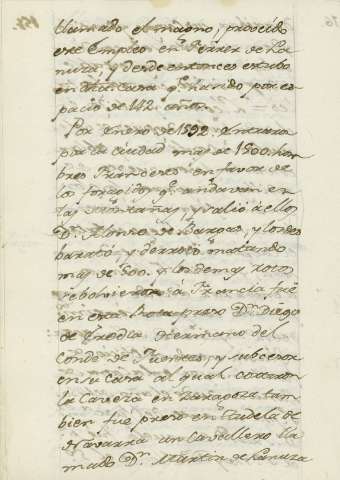 llamado el mismo, procedio
este Empleo en Ferrer de La
nuza y desde entonces estubo
en esta Casa por es
pacio de 142. años.
Por Enero de 1592 entraron
por la ciudad mas de 1500 hom
bres Franceses en favor de
los forcidos q. andaban en
las Montañas, y salio a ellos
D. Alonso de Bargas, y los des
barató y derrotó matando
mas de 500. y los demas rotos
rebolvieron á Francia fué
en esta Rota preso Dn. Diego
de Eredia Hermano del
Conde de Fuentes, y subcesor
en su casa al qual cortaron
la Caveza en Zaragoza tam
bien fué preso en Tudela de
Navarra un Cavallero lla
mado Dn. Martin de Lanuza